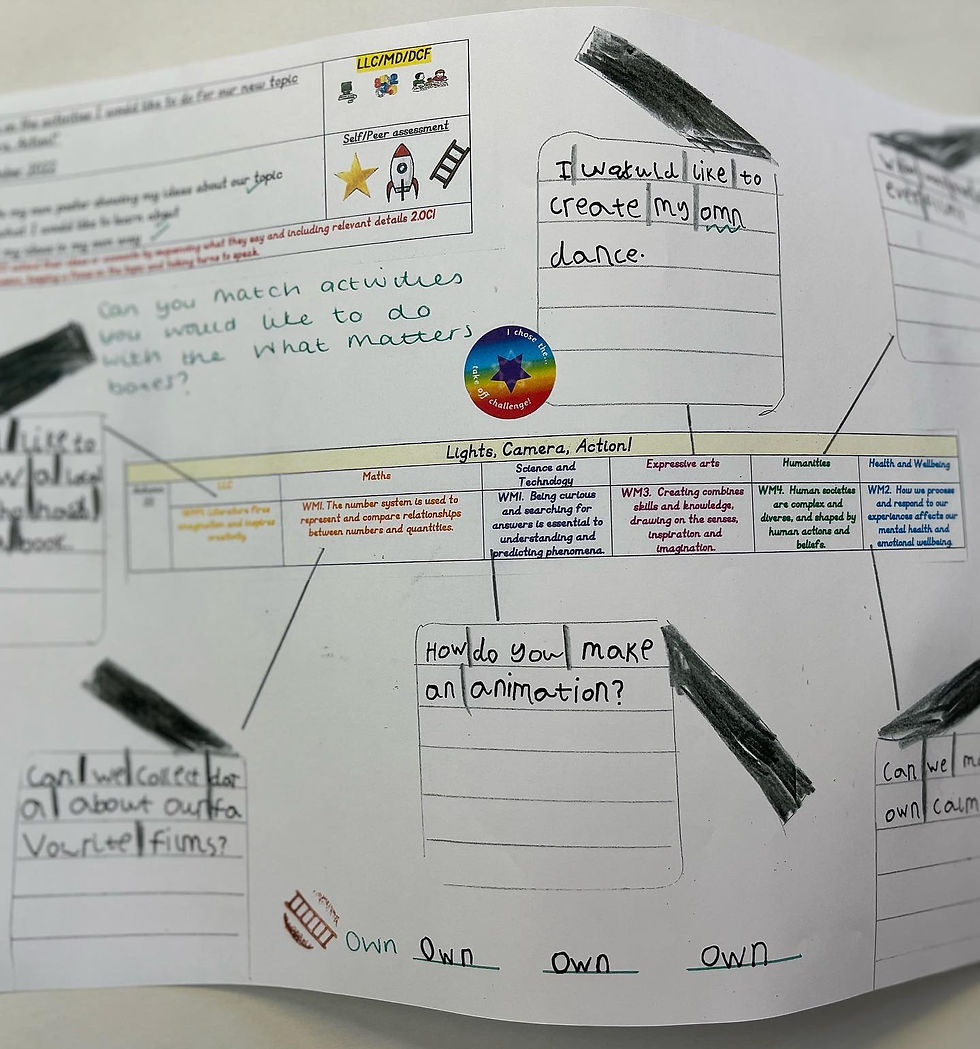 LLC/MD/DCF
as the activities I would like to do for our new topic
2022
my own poster showing my ideas about our topic
what I would like to learn about
my ideas in my own way
Self/Peer assessment
what they say and including relevant details 2.OC1
Can you match activities
you would like to do
with the what matters
boxes?
I chose the... take off challenge!
I would like to
create my omn
dance.
like to
book.
Lights, Camera, Action!
LLC
Maths
Science and Technology
Expressive arts
Humanities
Health and Wellbeing
WM1. Literature fires
imagination and inspires
creativity.
WM1. The number system is used to
represent and compare relationships
between numbers and quantities.
WM1. Being curious
and searching for
answers is essential to
understanding and
predicting phenomena.
WM3. Creating combines
skills and knowledge,
drawing on the senses,
inspiration and
imagination.
WM4. Human societies
are complex and
diverse, and shaped by
human actions and
beliefs.
WM2. How we process
and respond to our
experiences affects our
mental health and
emotional wellbeing.
How do you make
an animation?
Can we collect dat
a about our fa
vourite films?
Can we
own calm
Own Own Own Own